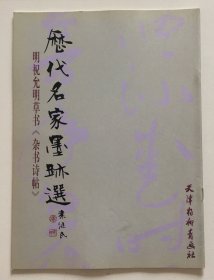 歷代名家墨跡選
明祝允明草书《杂书诗帖》
天津杨柳青画社